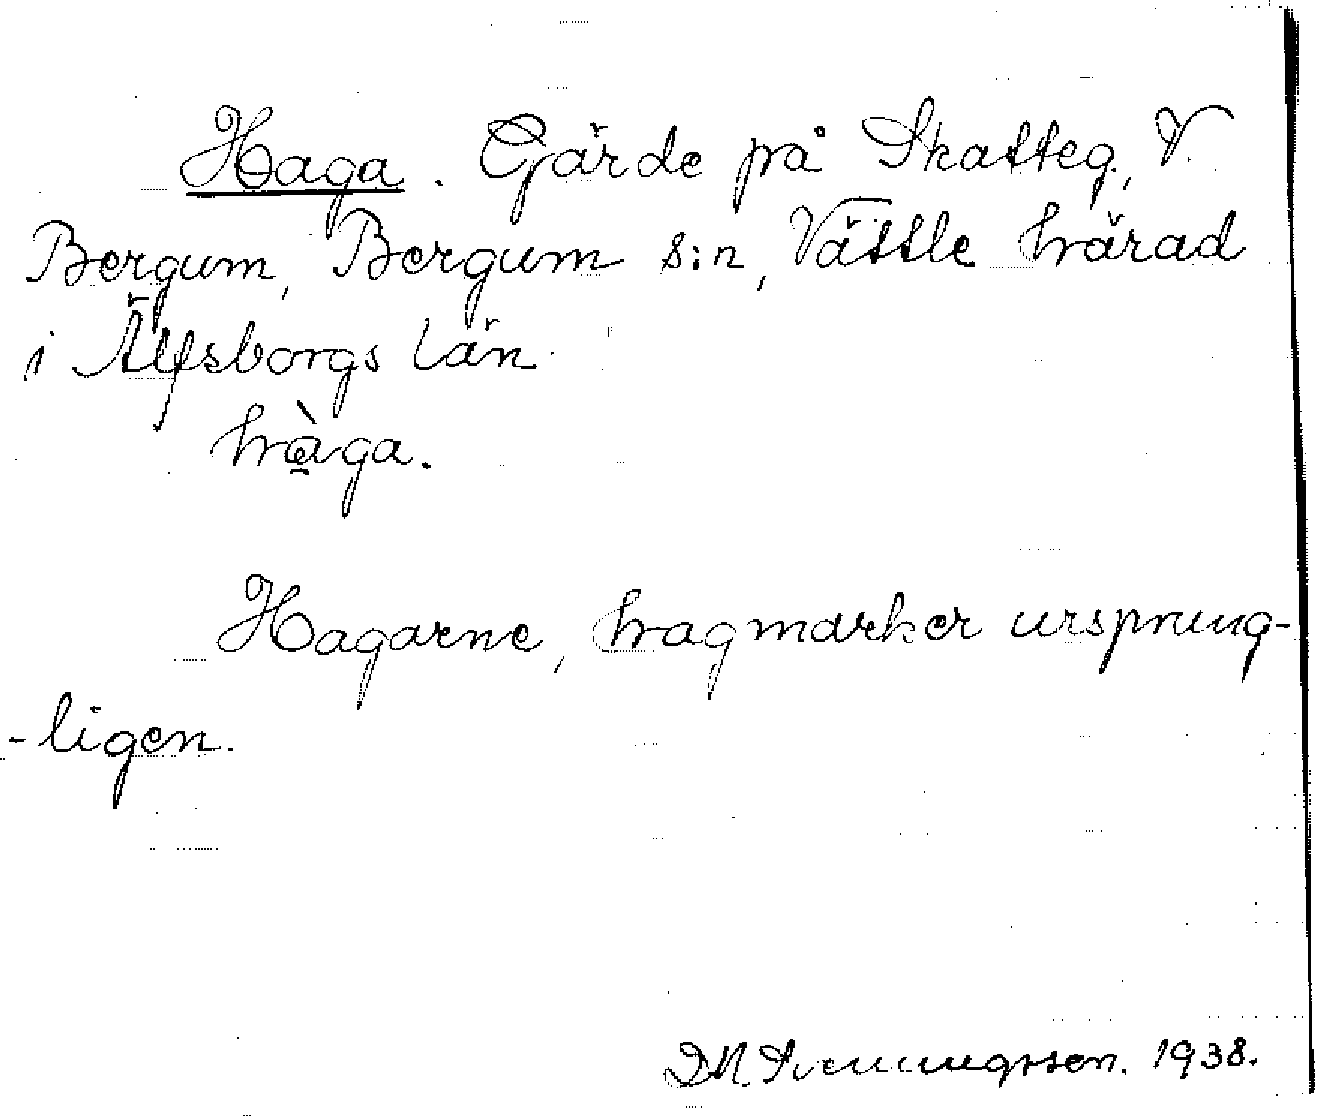 Haga. Gärde på Skatteg., V.
Bergum, Bergum s:n, Vättle härad
i Älfsborgs län.
hàga.
Hagarne, hagmarker ursprung-
-ligen.
D N Svenungsson. 1938.